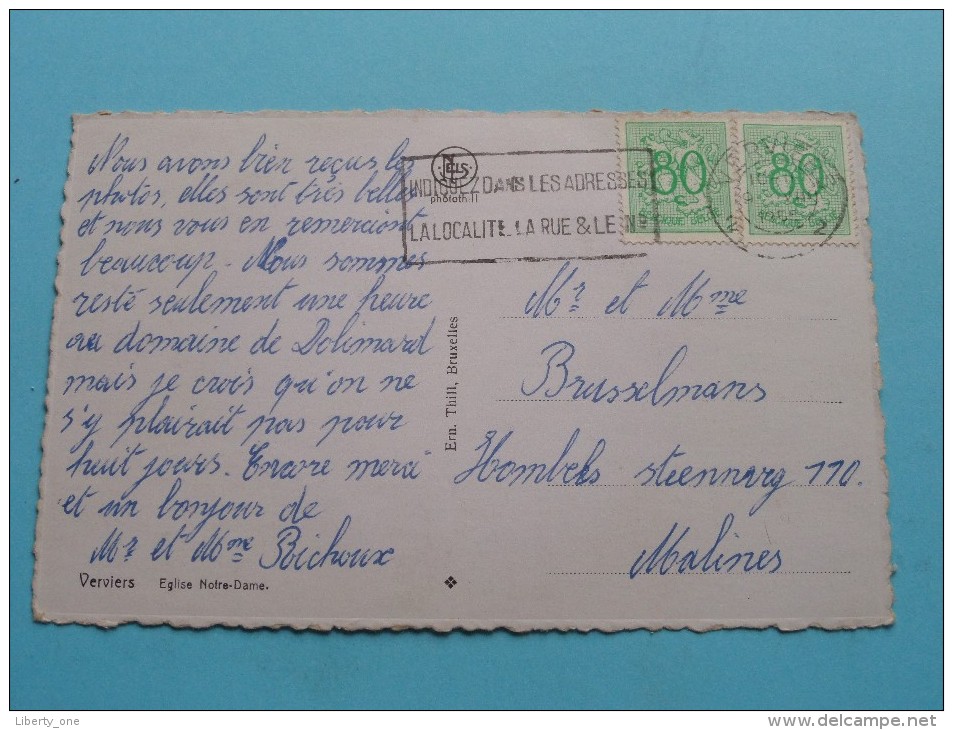 Nous avons bien reçus le
photos, elles sont très belles
et nous vous en remercions
beaucoup. Nous sommes
resté seulement une heure
au domaine de Dolimard
mais je crois qu'on ne
s'y plairait pas pour
huit jours. Encore merci
et un bonjour de
Mr et Mme Bichoux
Verviers Eglise Notre-Dame.
NELS
photothill
INDIQUEZ DANS LES ADRESSES
LA LOCALITE. LA RUE & LE No
80
80
Ern. Thill, Bruxelles
Mr et Mme
Brusselmans
Hombeks steenwarg 110.
Malines
Liberty_one
www.delcampe.net